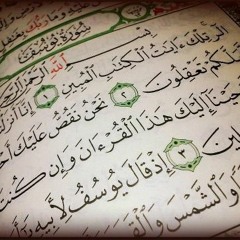 سُورَةُ يُوسُفَ
بِسْمِ ٱللَّهِ ٱلرَّحْمَٰنِ ٱلرَّ
الٓر تِلْكَ ءَايَٰتُ ٱلْكِتَٰبِ ٱلْمُبِينِ ١ إِنَّآ أَنزَ
لَّعَلَّكُمْ تَعْقِلُونَ ٢ نَحْنُ نَقُصُّ عَلَيْكَ أَحْ
حَيْنَآ إِلَيْكَ هَٰذَا ٱلْقُرْءَانَ وَإِن كُنتَ
٣ إِذْ قَالَ يُوسُفُ لِأَبِيهِ يَٰٓأَ
وَٱلشَّمْسَ وَٱلْقَمَرَ